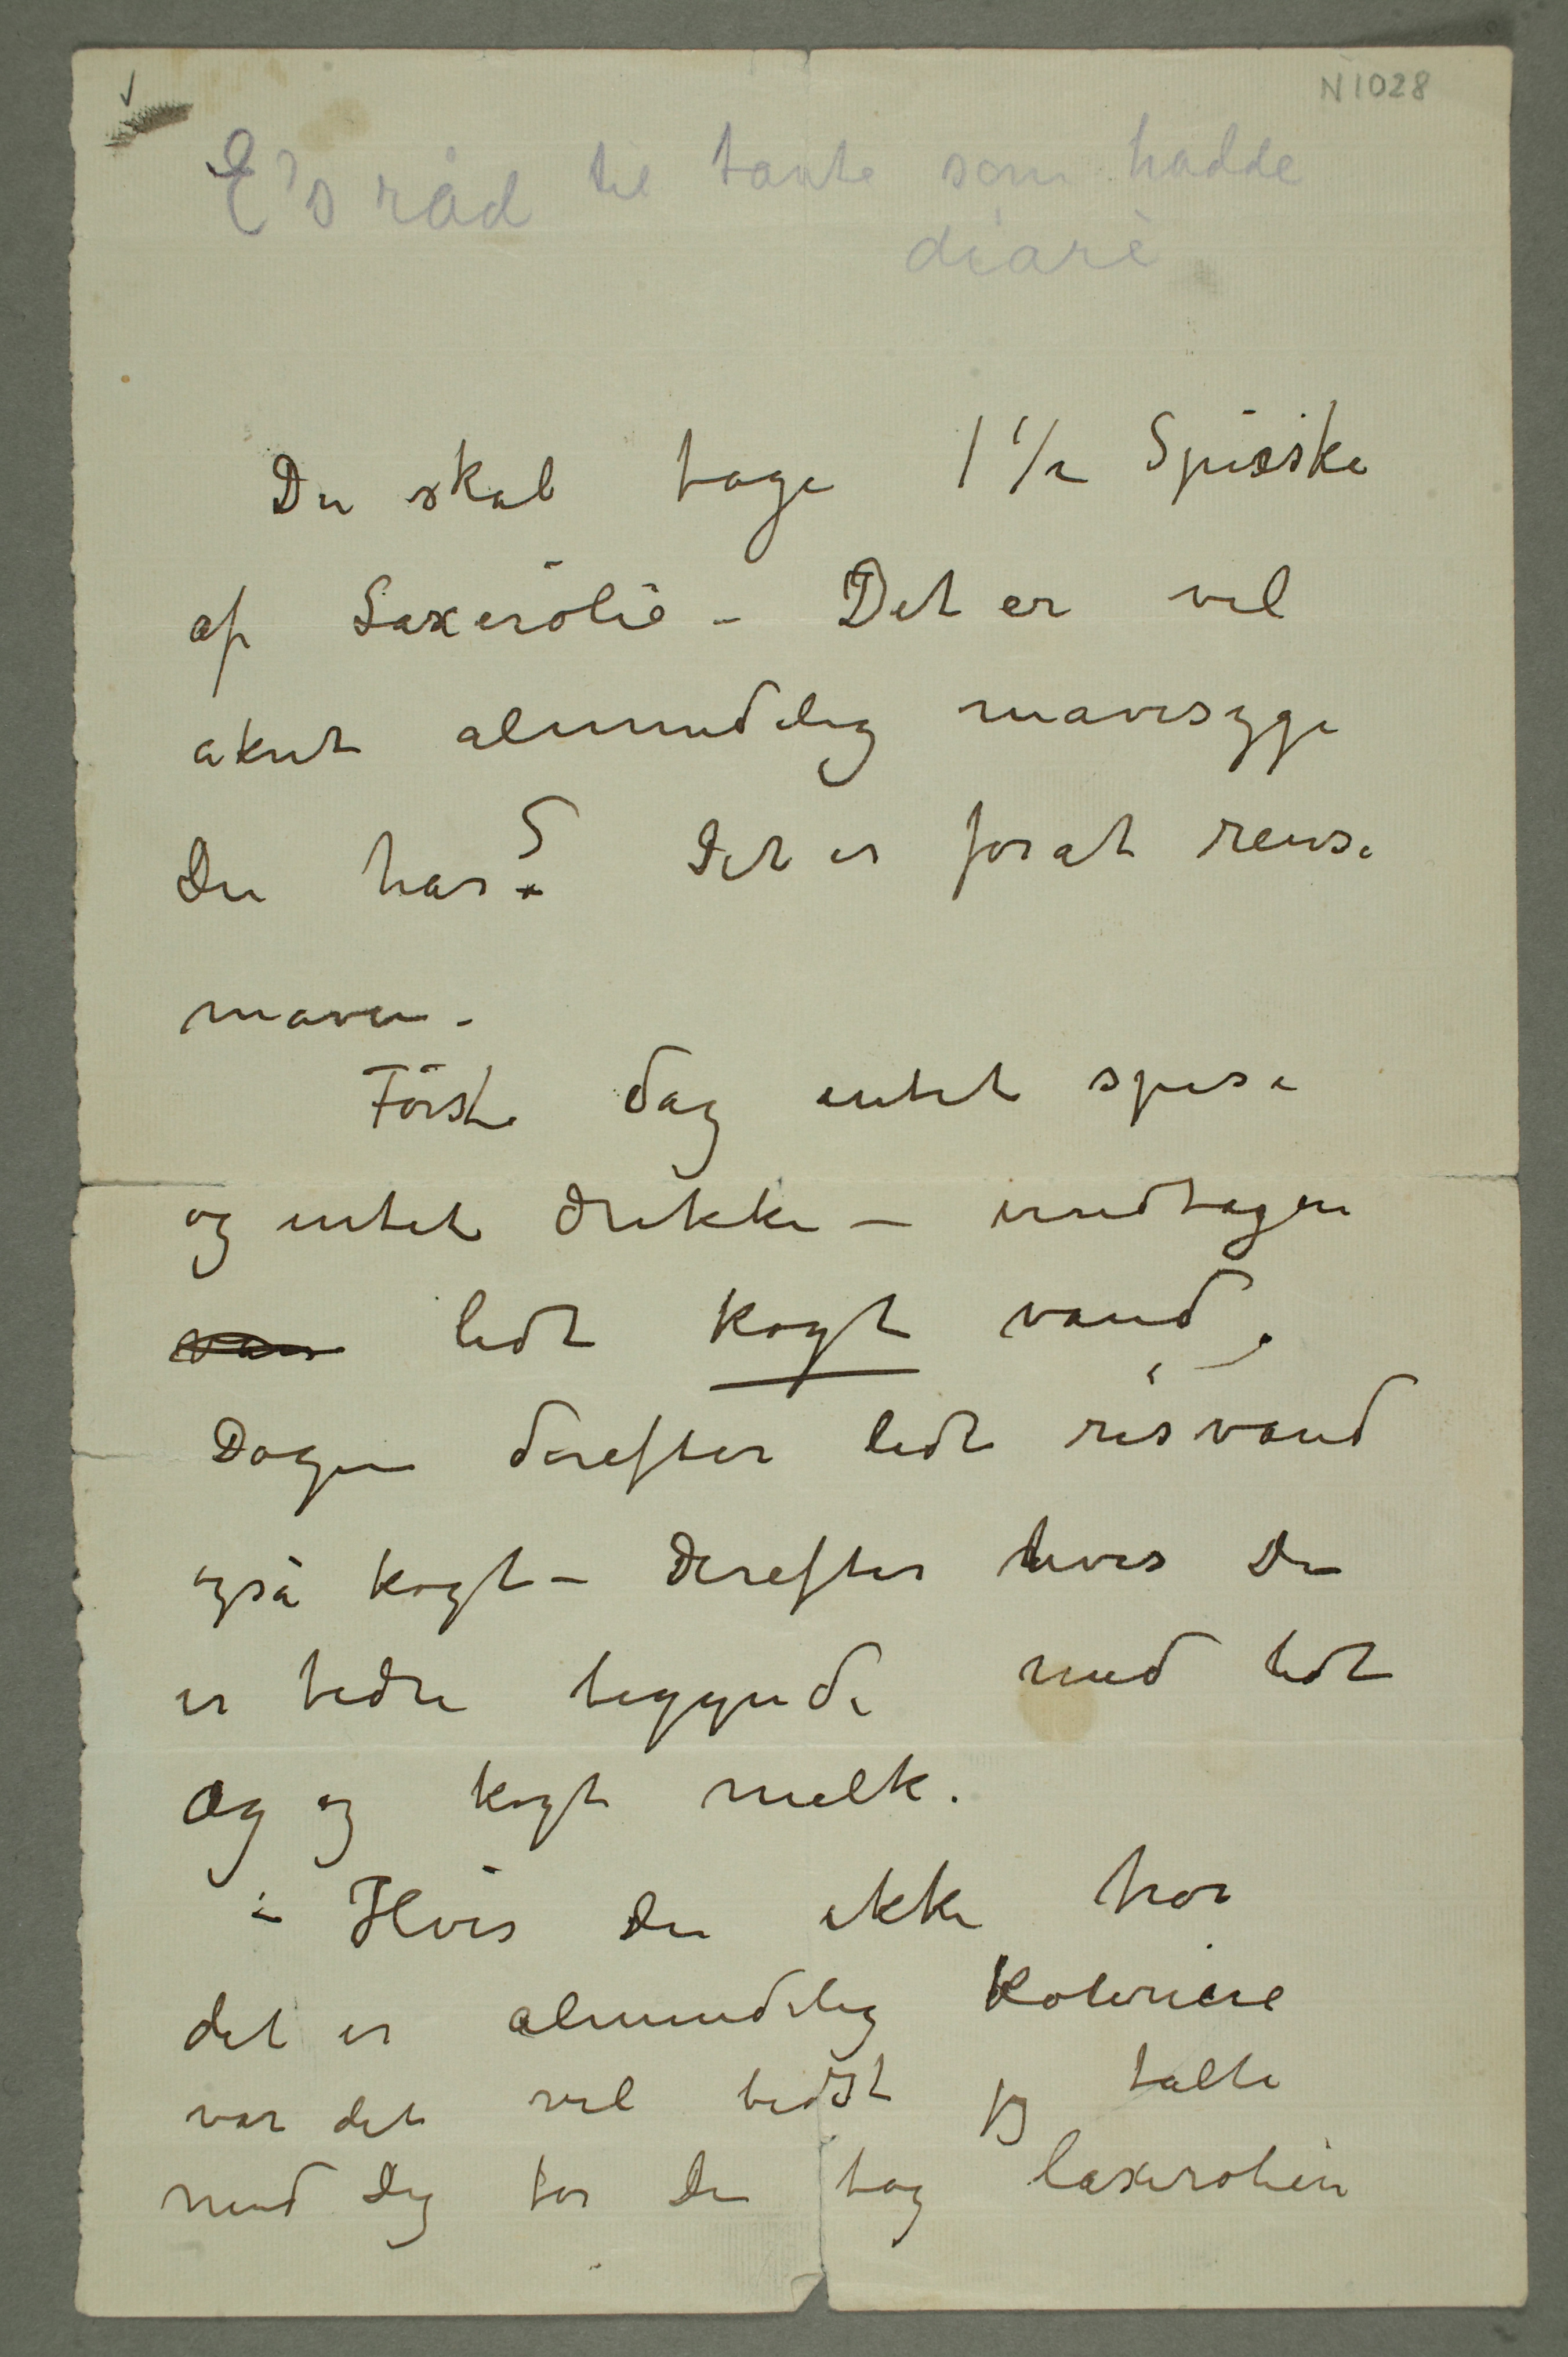 N 1028
E's råd til tante som hadde
diaré
Du skal tage 1 1/2 Spisske
af Laxerölie – Det er vel
akut almindelig mavesyge
Du har? Det er forat rense
maven –
Förste dag intet spise
og intet drikke – undtagen
van lidt kogt vand.
Dagen derefter lidt risvand
også kogt – Derefter hvis Du
er bedre begynde med lidt
æg og kogt melk.
– Hvis Du ikke har
det er almindelig
var det vel bedst jeg talte
med Dig før Du tog laxerolien